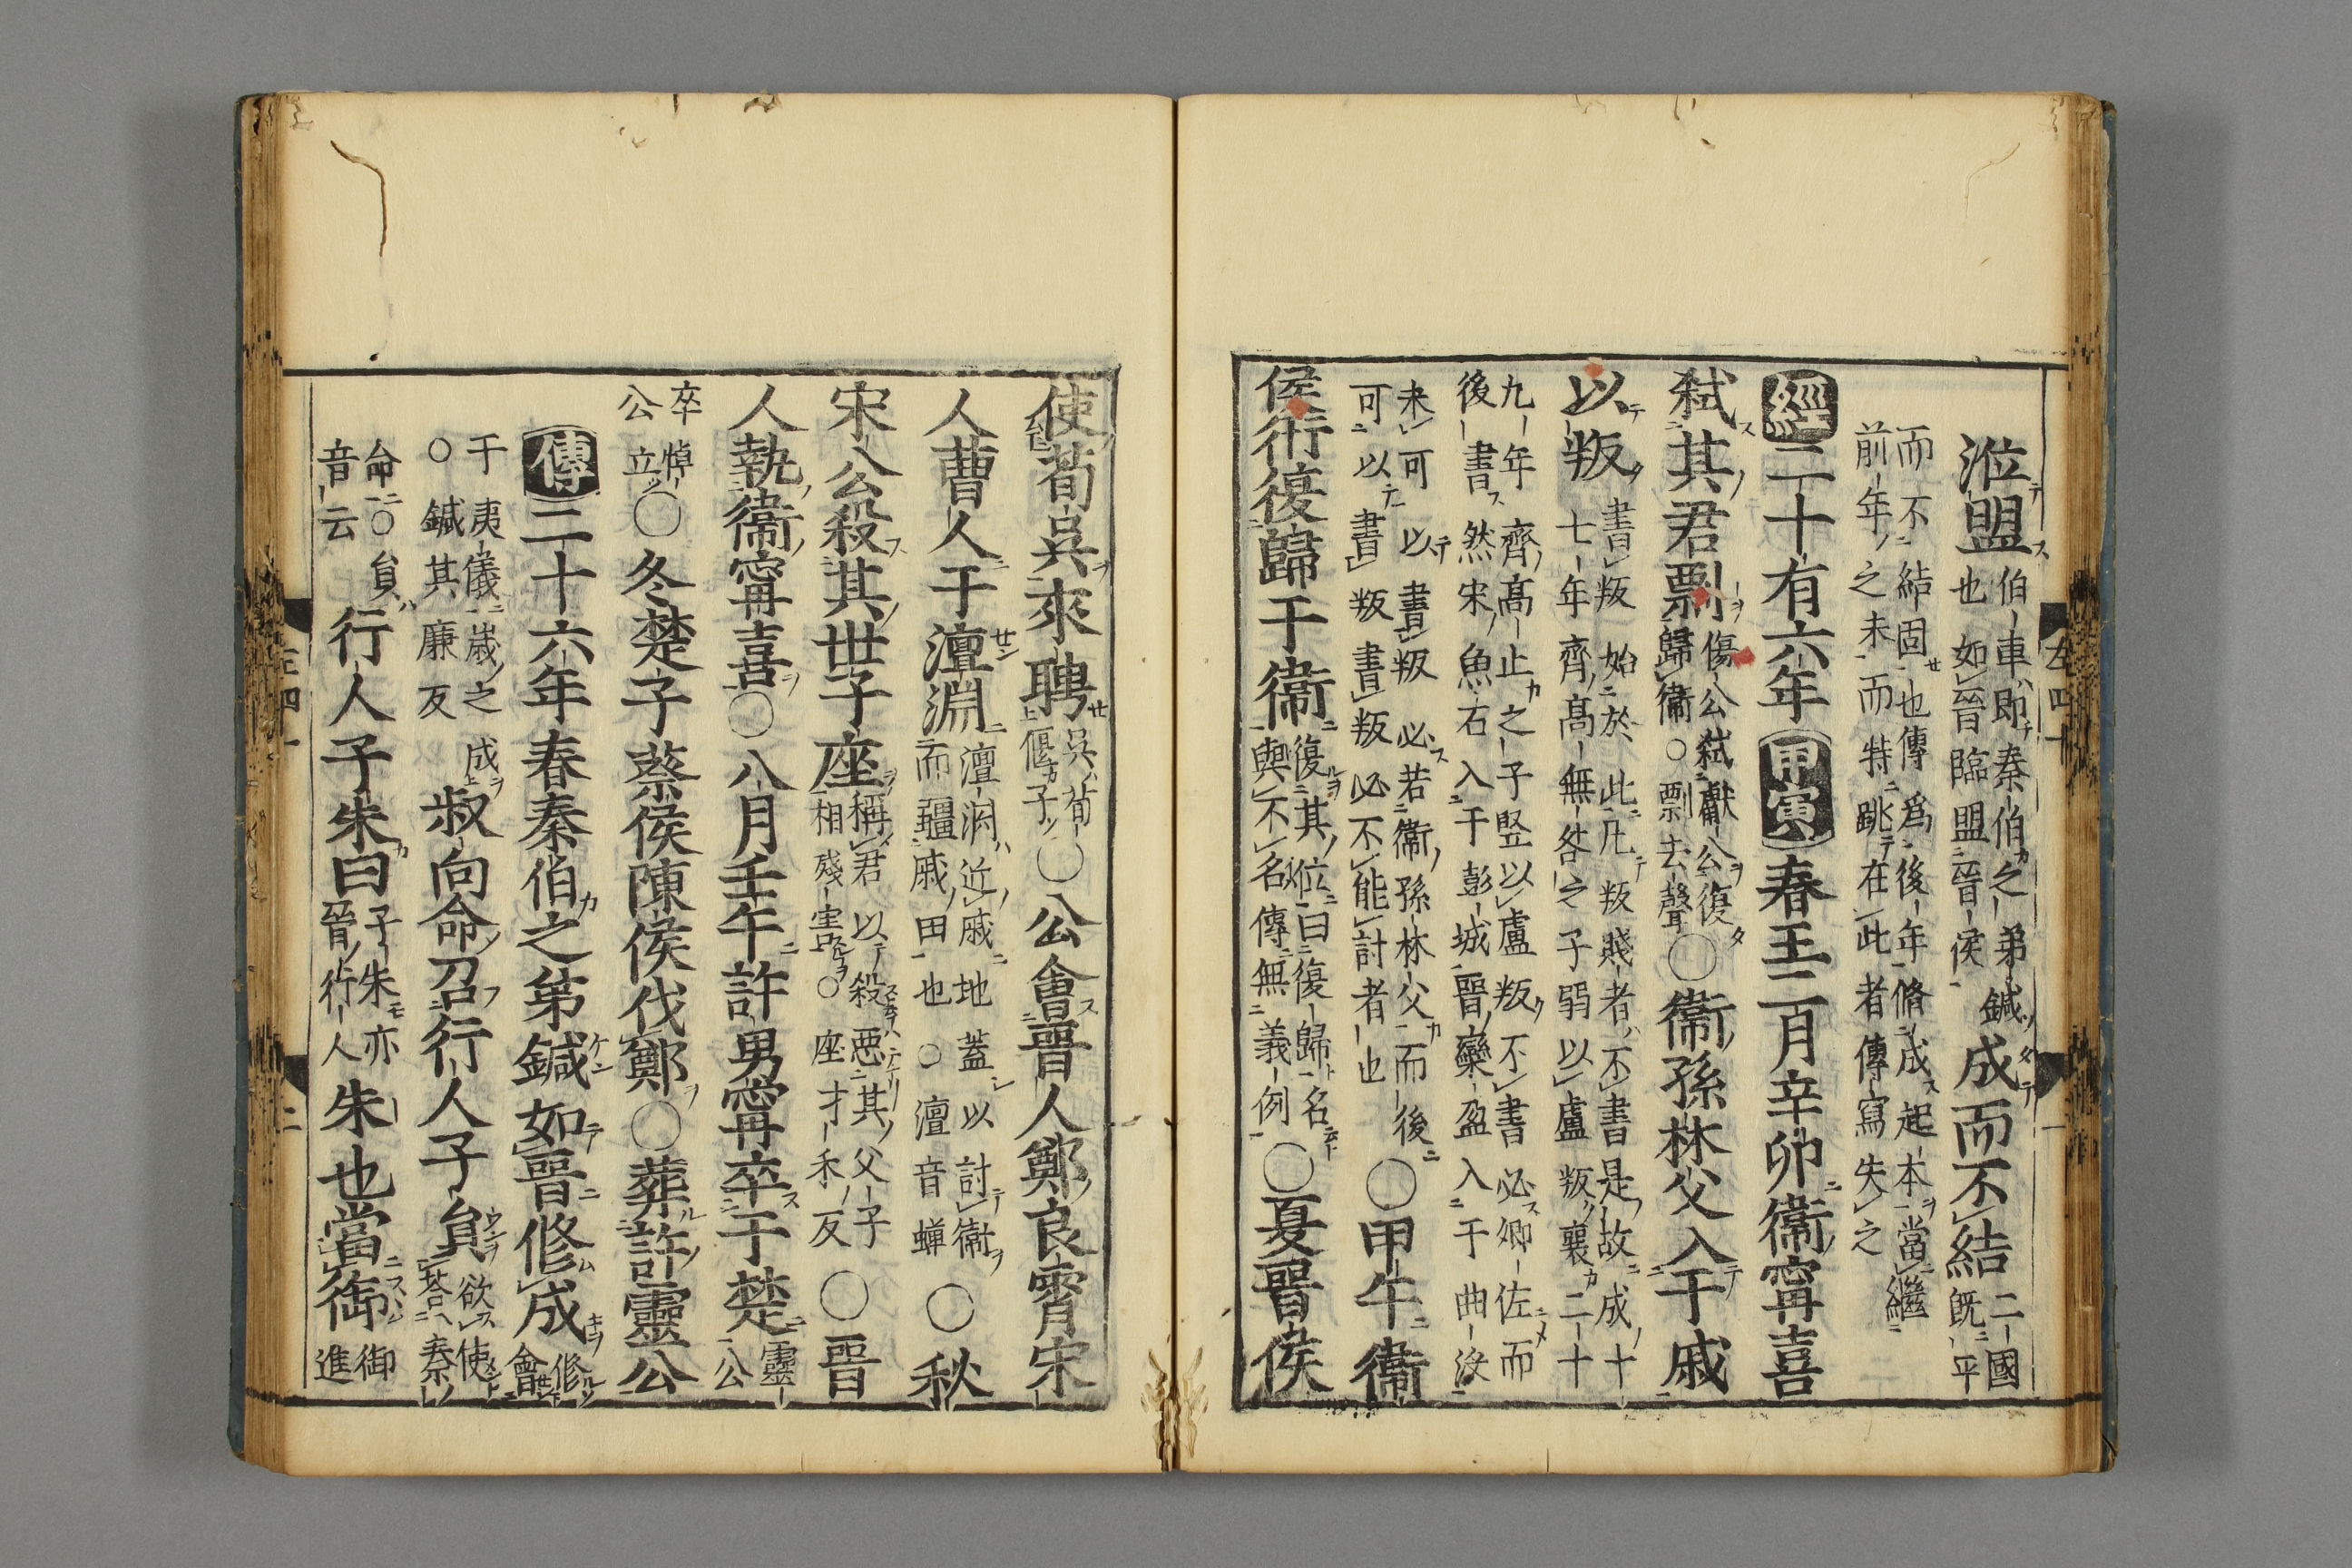 涖盟
伯車即秦伯之弟鍼
也如晉臨盟晉侯
成而不結
二國
既平
而不結固也傳爲後年脩成起本當繼
前年之未而特跳在此者傳寫失之
經二十有六年甲寅春王二月辛卯衞甯喜
弑其君剽
傷公弑獻公復
歸衞○剽去聲
○衞孫林父入于戚
以叛
書叛始於此凡叛賤者不書是故成十
七年齊髙無咎之子弱以盧叛襄二十
九年齊髙止之子竪以盧叛不書必卿佐而
後書然宋魚石入于彭城晉欒盈入于曲沃
来可以書叛必若衞孫林父而後
可以書叛書叛必不能討者也
○甲午衞
侯衎復歸于衞
復其位曰復歸名
與不名傳無義例
○夏晉侯
使荀吳來聘
吳荀
偃子
○公會晉人鄭良霄宋
人曹人于澶淵
澶淵近戚地蓋以討衞
而疆戚田也○澶音蟬
○秋
宋公殺其世子座
稱君以殺惡其父子
相殘害○座才禾反
○晉
人執衞甯喜○八月壬午許男甯卒于楚
靈
公
卒悼
公立
○冬楚子蔡侯陳侯伐鄭○葬許靈公
傳二十六年春秦伯之弟鍼如晉修成
修
會
于夷儀歳之成
○鍼其廉反
叔向命召行人子員
欲使
荅秦
命○員
音云
行人子朱曰
子朱亦
晉行人
朱也當御
御
進